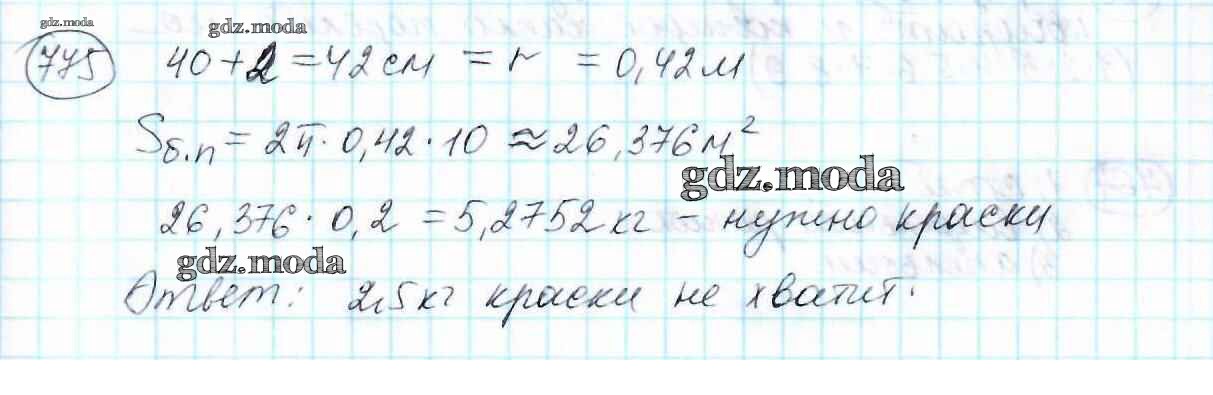 gdz.moda
gdz.moda
775 40+2=42см = r = 0,42м
Sб.п = 2π · 0,42 · 10 ≈ 26,376м²
gdz.moda
26,376 · 0,2 = 5,2752кг – нужно краски
gdz.moda
Ответ: 2,5кг краски не хватит.